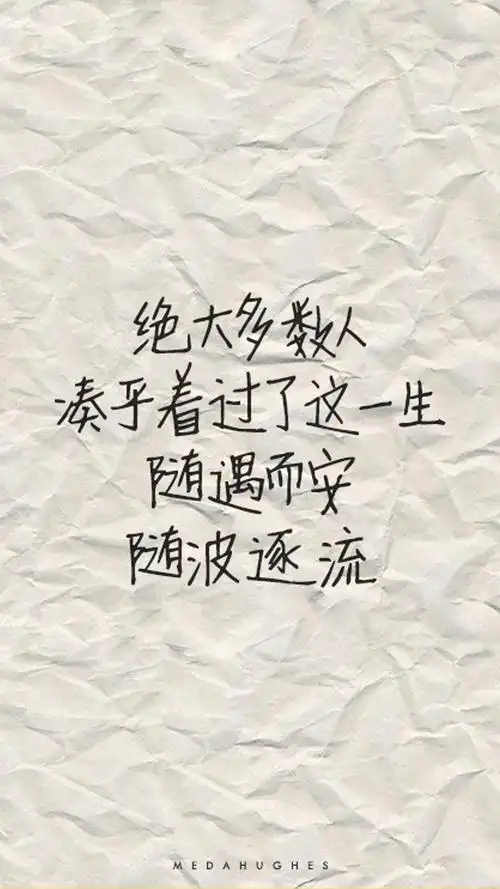 绝大多数人
凑乎着过了这一生
随遇而安
随波逐流
MEDAHUGHES